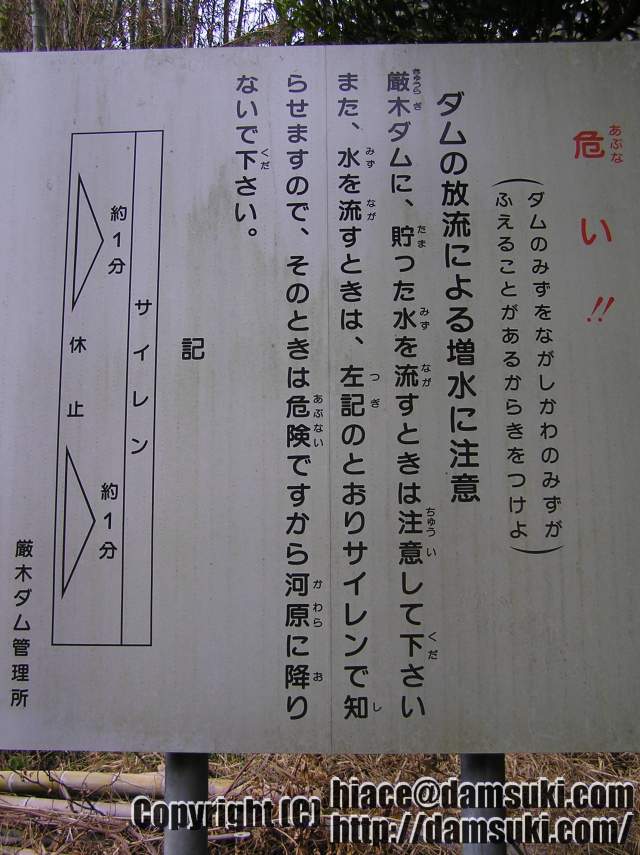 危い!!
(ダムのみずをながしかわのみずが
ふえることがあるからきをつけよ)
ダムの放流による増水に注意
厳木ダムに、貯った水を流すときは注意して下さい
また、水を流すときは、左記のとおりサイレンで知
らせますので、そのときは危険ですから河原に降り
ないで下さい。
記
サイレン
約1分
休止
約1分
厳木ダム管理所
あぶな
きゅうらぎ
たま
みず
なが
ちゅうい
くだ
みず
なが
つぎ
し
あぶない
かわら
お
くだ
Copyright (C) hiace@damsuki.com
http://damsuki.com/